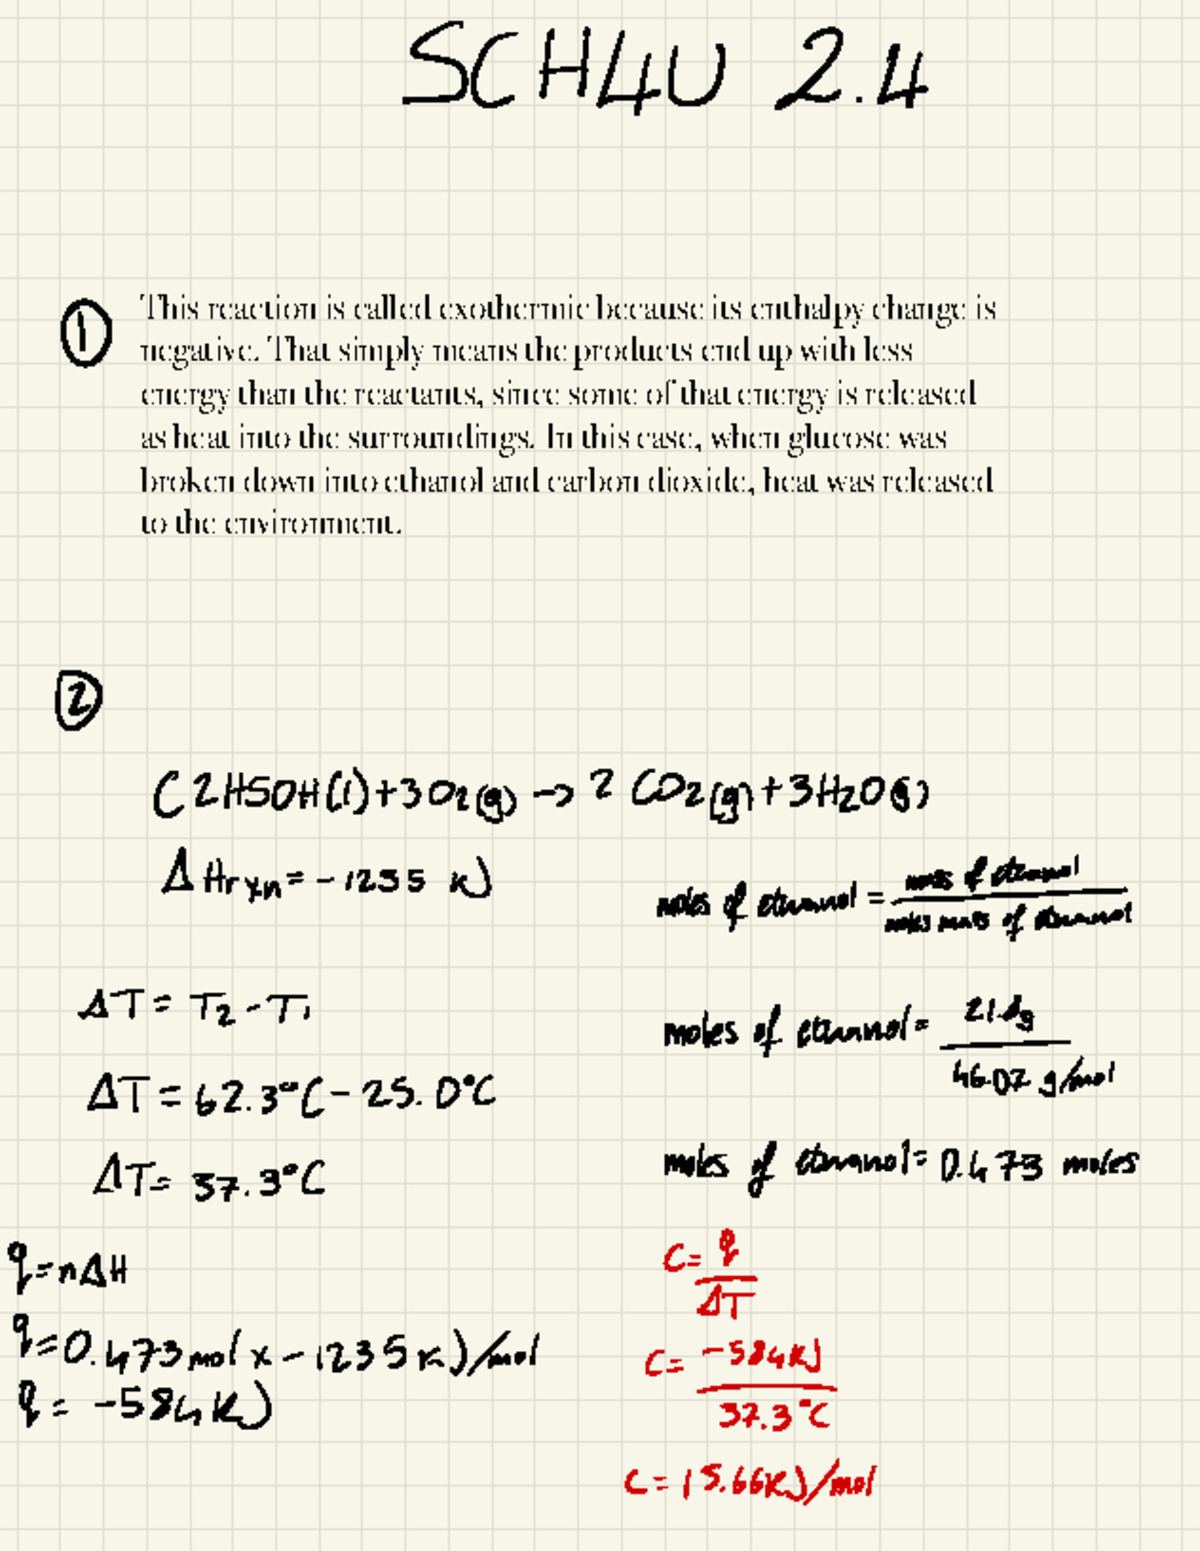 SCH4U 2.4
① This reaction is called exothermic because its enthalpy change is
negative. That simply means the products end up with less
energy than the reactants, since some of that energy is released
as heat into the surroundings. In this case, when glucose was
broken down into ethanol and carbon dioxide, heat was released
to the environment.
②
C2H5OH(l)+3O2(g) → 2 CO2(g)+3H2O(g)
ΔHrxn = -1235 kJ
moles of ethanol = of ethanol / mass of ethanol
ΔT = T2 - T1
moles of ethanol = g / 46.07 g/mol
ΔT = 62.3°C - 25.0°C
ΔT = 37.3°C
moles of ethanol = 0.473 moles
q = nΔH
C = q / ΔT
q = 0.473 mol x -1235 kJ/mol
C = -584 kJ / 37.3°C
q = -584 kJ
C = 15.66 kJ/mol